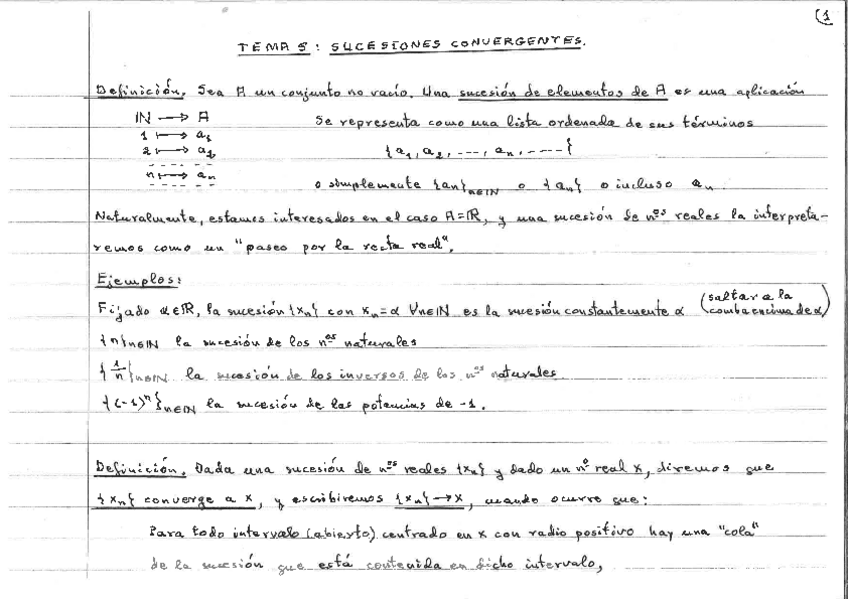 (1
TEMA 5: SUCESIONES CONVERGENTES.
Definición. Sea A un conjunto no vacío. Una sucesión de elementos de A es una aplicación
ℕ → A Se representa como una lista ordenada de sus términos
1 ↦ a₁
2 ↦ a₂ {a₁, a₂, ---, aₙ, ----}
n ↦ aₙ o simplemente {an}ₙ∈ℕ o {aₙ} o incluso aₙ
Naturalmente, estamos interesados en el caso A=ℝ, y una sucesión de nᵒˢ reales la interpreta-
remos como un "paseo por la recta real".
Ejemplos:
Fijado α∈ℝ, la sucesión {xₙ} con xₙ=α ∀n∈ℕ es la sucesión constantemente α (saltar a la comba encima de α)
{n}ₙ∈ℕ la sucesión de los nᵒˢ naturales
{1/n}ₙ∈ℕ la sucesión de los inversos de los nᵒˢ naturales
{(-1)ⁿ}ₙ∈ℕ la sucesión de las potencias de -1.
Definición. Dada una sucesión de nᵒˢ reales {xₙ} y dado un nᵒ real x, diremos que
{xₙ} converge a x, y escribiremos {xₙ}→x, cuando ocurre que:
Para todo intervalo (abierto) centrado en x con radio positivo hay una "cola"
de la sucesión que está contenida en dicho intervalo,